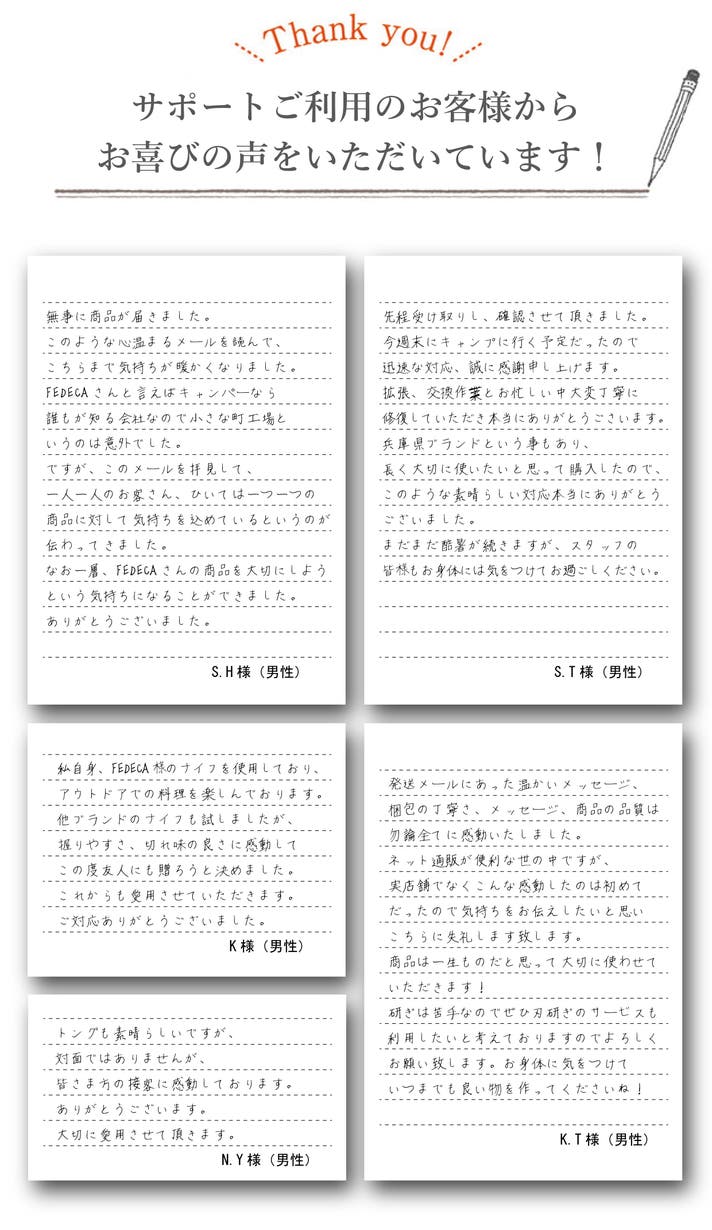 Thank you!
サポートご利用のお客様から
お喜びの声をいただいています！
無事に商品が届きました。
このような心温まるメールを読んで、
こちらまで気持ちが暖かくなりました。
FEDECAさんと言えばキャンパーなら
誰もが知る会社なので小さな町工場と
いうのは意外でした。
ですが、このメールを拝見して、
一人一人のお客さん、ひいては一つ一つの
商品に対して気持ちを込めているというのが
伝わってきました。
なお一層、FEDECAさんの商品を大切にしよう
という気持ちになることができました。
ありがとうございました。
S.H様（男性）
先程受け取りし、確認させて頂きました。
今週末にキャンプに行く予定だったので
迅速な対応、誠に感謝申し上げます。
拡張、交換作業とお忙しい中大変丁寧に
修復していただき本当にありがとうございます。
兵庫県ブランドという事もあり、
長く大切に使いたいと思って購入したので、
このような素晴らしい対応本当にありがとう
ございました。
まだまだ酷暑が続きますが、スタッフの
皆様もお身体には気をつけてお過ごしください。
S.T様（男性）
私自身、FEDECA様のナイフを使用しており、
アウトドアでの料理を楽しんております。
他ブランドのナイフも試しましたが、
握りやすさ、切れ味の良さに感動して
この度友人にも贈ろうと決めました。
これからも愛用させていただきます。
ご対応ありがとうございました。
K様（男性）
発送メールにあった温かいメッセージ、
梱包の丁寧さ、メッセージ、商品の品質は
勿論全てに感動いたしました。
ネット通販が便利な世の中ですが、
実店舗でなくこんな感動したのは初めて
だったので気持ちをお伝えしたいと思い
こちらに失礼します致します。
商品は一生ものだと思って大切に使わせて
いただきます！
研ぎは苦手なのでぜひ刃研ぎのサービスも
利用したいと考えておりますのでよろしく
お願い致します。お身体に気をつけて
いつまでも良い物を作ってくださいね！
K.T様（男性）
トングも素晴らしいですが、
対面ではありませんが、
皆さま方の接客に感動しております。
ありがとうございます。
大切に愛用させて頂きます。
N.Y様（男性）